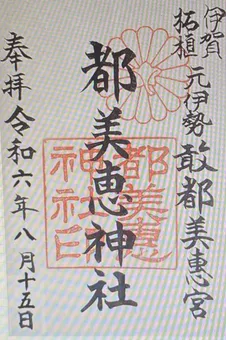 伊賀
拓植
元伊勢敢都美恵宮
都美恵神社
奉拝令和六年八月十五日
都美惠
神社印